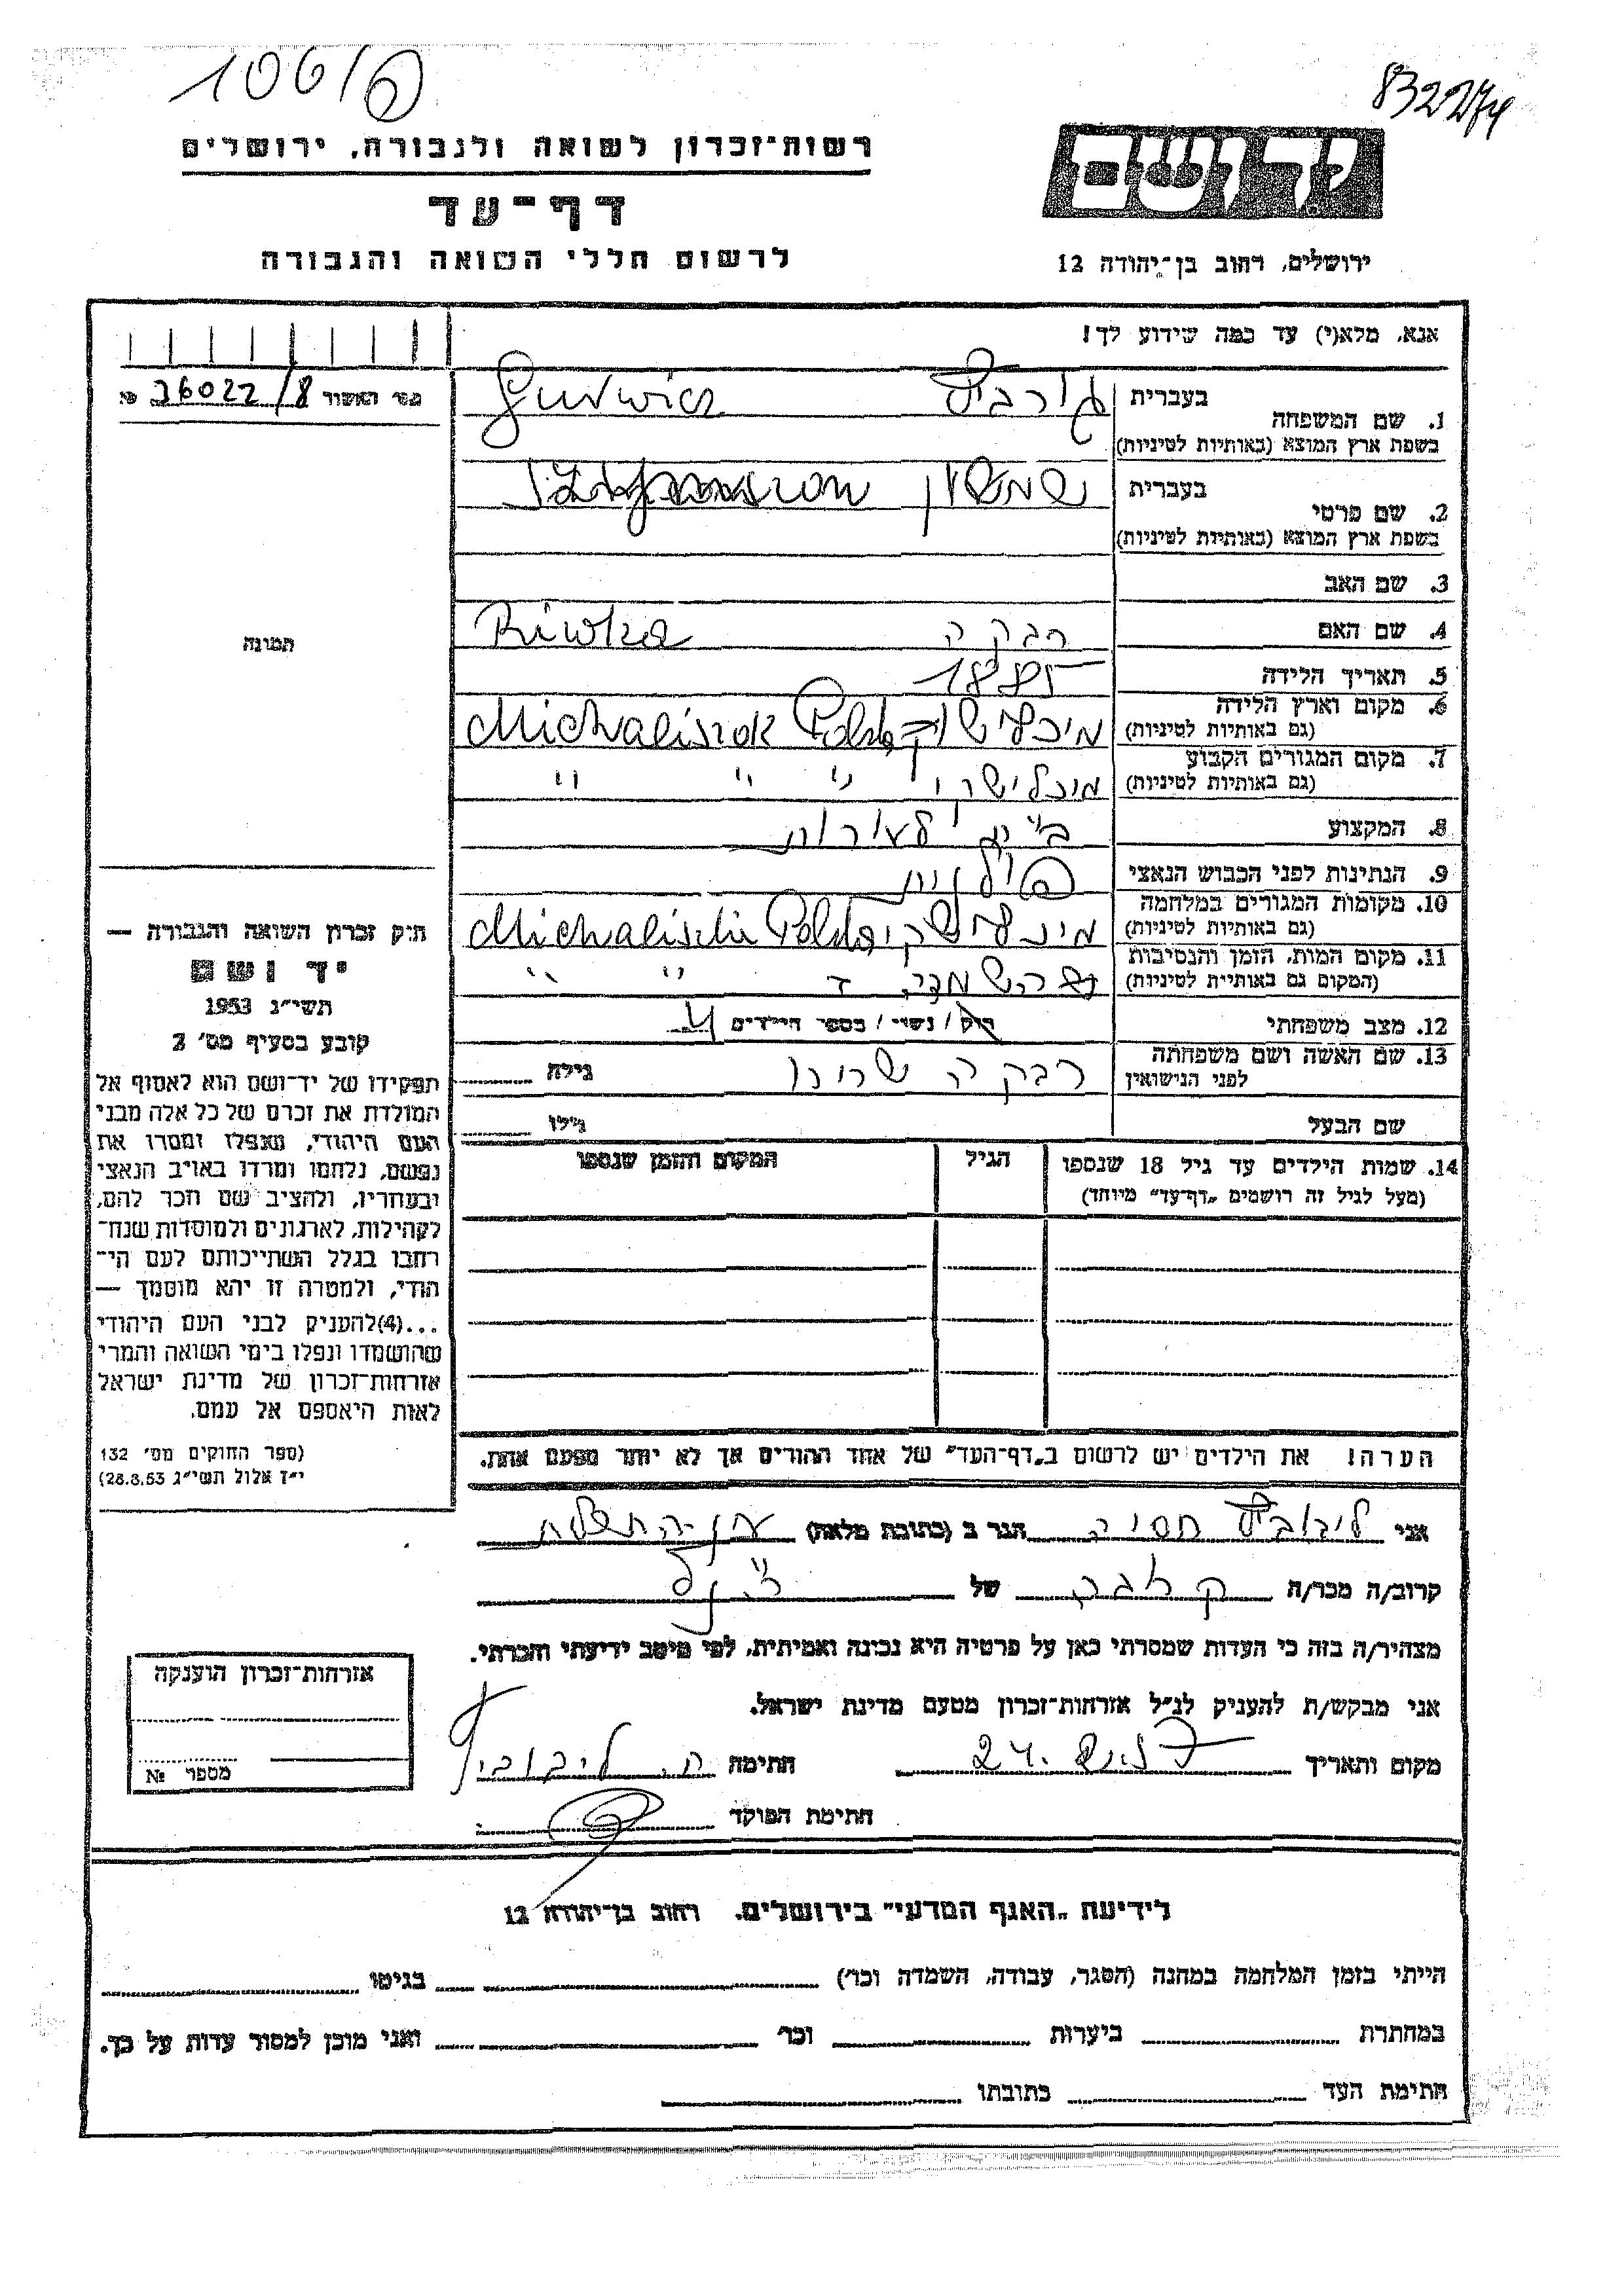 106/6
832274
יד ושם
ירושלים, רחוב בן־יהודה 12
רשות־זכרון לשואה ולגבורה, ירושלים
דף־עד
לרשום חללי השואה והגבורה
אנא, מלא(י) עד כמה שידוע לך!
מס׳ האשור 36022/8 №
בעברית
1. שם המשפחה
בשפת ארץ המוצא (באותיות לטיניות)
גורביץ Gurwicz
בעברית
2. שם פרטי
בשפת ארץ המוצא (באותיות לטיניות)
שמשון
3. שם האב
4. שם האם רבקה Riwka
5. תאריך הלידה 1885
6. מקום וארץ הלידה
(גם באותיות לטיניות)
Polska Michaliszok
7. מקום המגורים הקבוע
(גם באותיות לטיניות)
" " " "
8. המקצוע
9. הנתינות לפני הכבוש הנאצי
10. מקומות המגורים במלחמה
(גם באותיות לטיניות)
Michaliszki Polska
11. מקום המות, הזמן והנסיבות
(המקום גם באותיות לטיניות)
" "
12. מצב משפחתי רוק / נשוי / מספר הילדים 4
13. שם האשה ושם משפחתה
לפני הנישואין
רבקה גילה
שם הבעל גילו
14. שמות הילדים עד גיל 18 שנספו
(מעל לגיל זה רושמים „דף־עד״ מיוחד)
הגיל
המקום והזמן שנספו
הערה! את הילדים יש לרשום ב„דף־העד״ של אחד ההורים אך לא יותר מפעם אחת.
תמונה
חוק זכרון השואה והגבורה —
יד ושם
תשי״ג 1953
קובע בסעיף מס׳ 2
תפקידו של יד־ושם הוא לאסוף אל
המולדת את זכרם של כל אלה מבני
העם היהודי, שנפלו ומסרו את
נפשם, נלחמו ומרדו באויב הנאצי
ובעוזריו, ולהציב שם וזכר להם,
לקהילות, לארגונים ולמוסדות שנח־
רבו בגלל השתייכותם לעם הי־
הודי, ולמטרה זו יהא מוסמך —
...(4) להעניק לבני העם היהודי
שהושמדו ונפלו בימי השואה והמרי
אזרחות־זכרון של מדינת ישראל
לאות היאספם אל עמם.
(ספר החוקים מס׳ 132
י״ז אלול תשי״ג 28.8.53)
אני ליבוביץ חסיה הגר ב (כתובת מלאה)
קרוב/ה מכר/ה של
מצהיר/ה בזה כי העדות שמסרתי כאן על פרטיה היא נכונה ואמיתית, לפי מיטב ידיעתי והכרתי.
אני מבקש/ת להעניק לנ״ל אזרחות־זכרון מטעם מדינת ישראל.
מקום ותאריך חתימה ח. ליבוביץ
חתימת הפוקד
אזרחות־זכרון הוענקה
מספר №
לידיעת „האגף המדעי״ בירושלים, רחוב בן־יהודה 12
הייתי בזמן המלחמה במחנה (הסגר, עבודה, השמדה וכו׳) בגיטו
במחתרת ביערות וכו׳ ואני מוכן למסור עדות על כך.
חתימת העד כתובתו